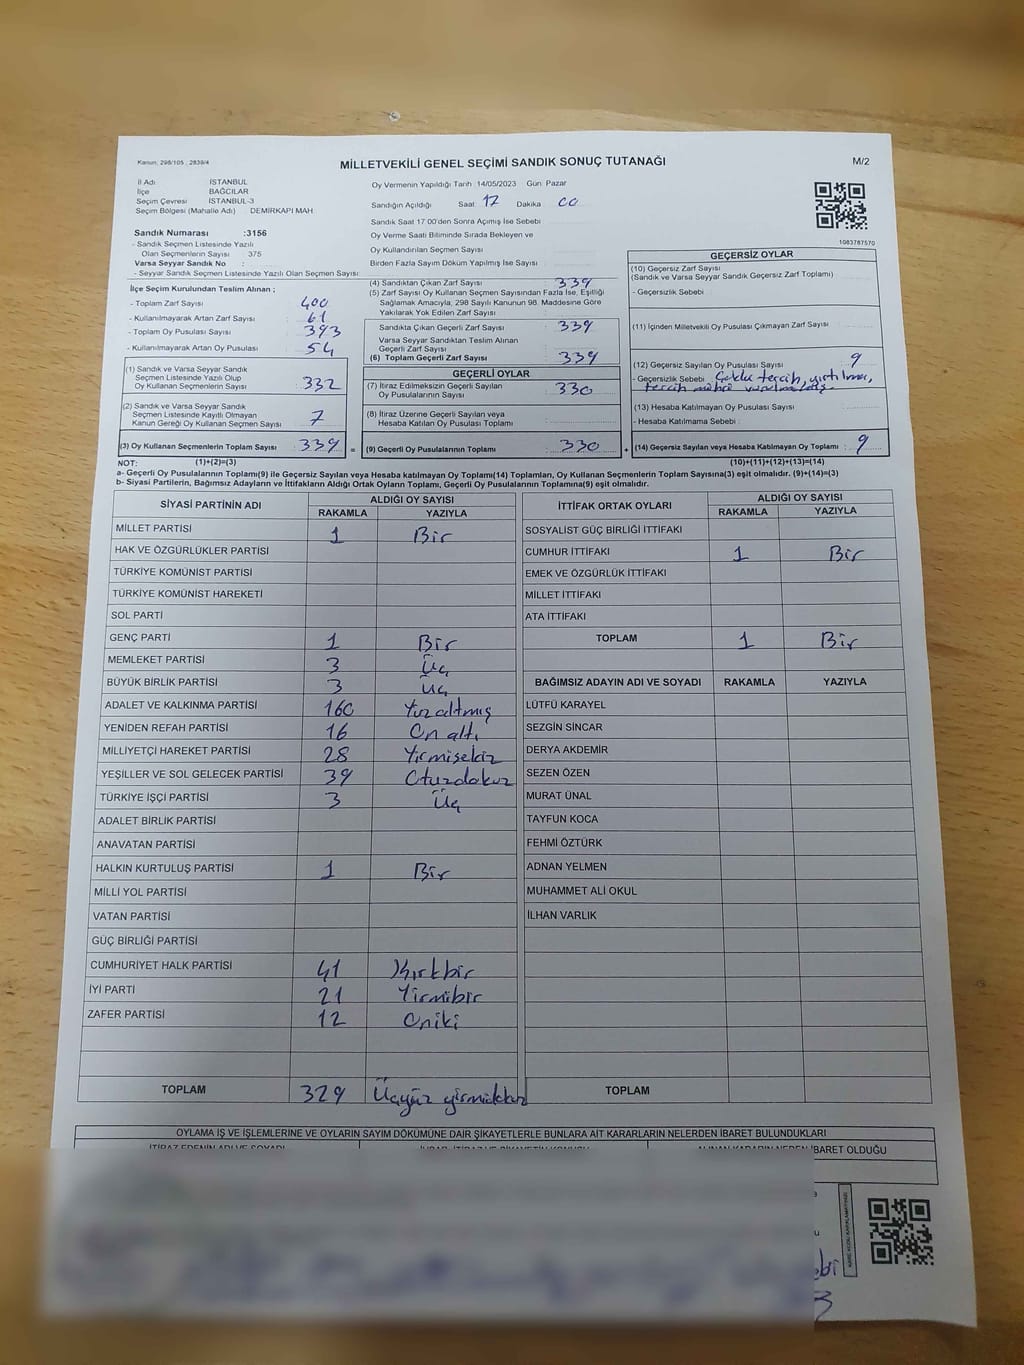 Kanun, 298/105 , 2839/4
MİLLETVEKİLİ GENEL SEÇİMİ SANDIK SONUÇ TUTANAĞI
M/2
İl Adı İSTANBUL
İlçe BAĞCILAR
Seçim Çevresi İSTANBUL-3
Seçim Bölgesi (Mahalle Adı) DEMİRKAPI MAH.
Sandık Numarası :3156
- Sandık Seçmen Listesinde Yazılı
Olan Seçmenlerin Sayısı 375
Varsa Seyyar Sandık No :
- Seyyar Sandık Seçmen Listesinde Yazılı Olan Seçmen Sayısı:
Oy Vermenin Yapıldığı Tarih 14/05/2023 Gün: Pazar
Sandığın Açıldığı Saat 17 Dakika 00
Sandık Saat 17.00'den Sonra Açımış İse Sebebi
Oy Verme Saati Bitiminde Sırada Bekleyen ve
Oy Kullandırılan Seçmen Sayısı
Birden Fazla Sayım Döküm Yapılmış İse Sayısı
1083787570
İlçe Seçim Kurulundan Teslim Alınan ;
- Toplam Zarf Sayısı 400
- Kullanılmayarak Artan Zarf Sayısı 61
- Toplam Oy Pusulası Sayısı 393
- Kullanılmayarak Artan Oy Pusulası 54
(1) Sandık ve Varsa Seyyar Sandık
Seçmen Listesinde Yazılı Olup
Oy Kullanan Seçmenlerin Sayısı 332
(2) Sandık ve Varsa Seyyar Sandık
Seçmen Listesinde Kayıtlı Olmayan
Kanun Gereği Oy Kullanan Seçmen Sayısı 7
(3) Oy Kullanan Seçmenlerin Toplam Sayısı 339 =
(4) Sandıktan Çıkan Zarf Sayısı 339
(5) Zarf Sayısı Oy Kullanan Seçmen Sayısından Fazla İse, Eşitliği
Sağlamak Amacıyla, 298 Sayılı Kanunun 98. Maddesine Göre
Yakılarak Yok Edilen Zarf Sayısı
Sandıkta Çıkan Geçerli Zarf Sayısı 339
Varsa Seyyar Sandıktan Teslim Alınan
Geçerli Zarf Sayısı
(6) Toplam Geçerli Zarf Sayısı 339
GEÇERLİ OYLAR
(7) İtiraz Edilmeksizin Geçerli Sayılan
Oy Pusulalarının Sayısı 330
(8) İtiraz Üzerine Geçerli Sayılan veya
Hesaba Katılan Oy Pusulası Toplamı
(9) Geçerli Oy Pusulalarının Toplamı 330 +
GEÇERSİZ OYLAR
(10) Geçersiz Zarf Sayısı
(Sandık ve Varsa Seyyar Sandık Geçersiz Zarf Toplamı)
- Geçersizlik Sebebi
(11) İçinden Milletvekili Oy Pusulası Çıkmayan Zarf Sayısı
(12) Geçersiz Sayılan Oy Pusulası Sayısı 9
- Geçersizlik Sebebi Çoklu tercih, yırtılma,
tercih mührü
(13) Hesaba Katılmayan Oy Pusulası Sayısı
- Hesaba Katılmama Sebebi
(14) Geçersiz Sayılan veya Hesaba Katılmayan Oy Toplamı : 9
NOT: (1)+(2)=(3) (10)+(11)+(12)+(13)=(14)
a- Geçerli Oy Pusulalarının Toplamı(9) ile Geçersiz Sayılan veya Hesaba katılmayan Oy Toplamı(14) Toplamları, Oy Kullanan Seçmenlerin Toplam Sayısına(3) eşit olmalıdır. (9)+(14)=(3)
b- Siyasi Partilerin, Bağımsız Adayların ve İttifakların Aldığı Ortak Oyların Toplamı, Geçerli Oy Pusulalarının Toplamına(9) eşit olmalıdır.
SİYASİ PARTİNİN ADI ALDIĞI OY SAYISI
RAKAMLA YAZIYLA
MİLLET PARTİSİ 1 Bir
HAK VE ÖZGÜRLÜKLER PARTİSİ
TÜRKİYE KOMÜNİST PARTİSİ
TÜRKİYE KOMÜNİST HAREKETİ
SOL PARTİ
GENÇ PARTİ 1 Bir
MEMLEKET PARTİSİ 3 Üç
BÜYÜK BİRLİK PARTİSİ 3 Üç
ADALET VE KALKINMA PARTİSİ 160 Yüzaltmış
YENİDEN REFAH PARTİSİ 16 On altı
MİLLİYETÇİ HAREKET PARTİSİ 28 Yirmisekiz
YEŞİLLER VE SOL GELECEK PARTİSİ 39 Otuzdokuz
TÜRKİYE İŞÇİ PARTİSİ 3 Üç
ADALET BİRLİK PARTİSİ
ANAVATAN PARTİSİ
HALKIN KURTULUŞ PARTİSİ 1 Bir
MİLLİ YOL PARTİSİ
VATAN PARTİSİ
GÜÇ BİRLİĞİ PARTİSİ
CUMHURİYET HALK PARTİSİ 41 Kırkbir
İYİ PARTİ 21 Yirmibir
ZAFER PARTİSİ 12 Oniki
TOPLAM 329 Üçyüz yirmidokuz
İTTİFAK ORTAK OYLARI ALDIĞI OY SAYISI
RAKAMLA YAZIYLA
SOSYALİST GÜÇ BİRLİĞİ İTTİFAKI
CUMHUR İTTİFAKI 1 Bir
EMEK VE ÖZGÜRLÜK İTTİFAKI
MİLLET İTTİFAKI
ATA İTTİFAKI
TOPLAM 1 Bir
BAĞIMSIZ ADAYIN ADI VE SOYADI RAKAMLA YAZIYLA
LÜTFÜ KARAYEL
SEZGİN SİNCAR
DERYA AKDEMİR
SEZEN ÖZEN
MURAT ÜNAL
TAYFUN KOCA
FEHMİ ÖZTÜRK
ADNAN YELMEN
MUHAMMET ALİ OKUL
İLHAN VARLIK
TOPLAM
OYLAMA İŞ VE İŞLEMLERİNE VE OYLARIN SAYIM DÖKÜMÜNE DAİR ŞİKAYETLERLE BUNLARA AİT KARARLARIN NELERDEN İBARET BULUNDUKLARI
İTİRAZ EDENİN ADI VE SOYADI ALINAN KARARIN NEDEN İBARET OLDUĞU